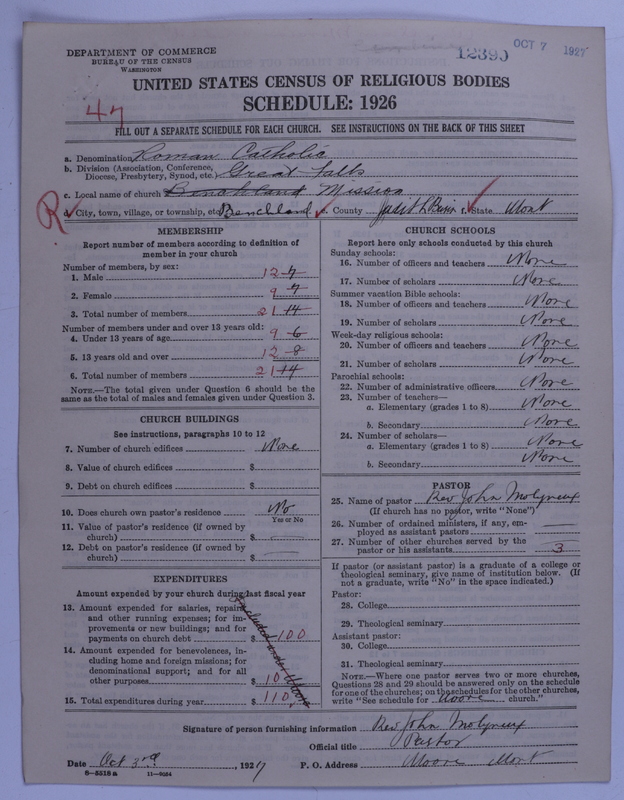 12395
OCT 7 1927
DEPARTMENT OF COMMERCE
BUREAU OF THE CENSUS
WASHINGTON
UNITED STATES CENSUS OF RELIGIOUS BODIES
SCHEDULE: 1926
47
FILL OUT A SEPARATE SCHEDULE FOR EACH CHURCH. SEE INSTRUCTIONS ON THE BACK OF THIS SHEET
a. Denomination Roman Catholic
b. Division (Association, Conference, Diocese, Presbytery, Synod, etc.) Great Falls
c. Local name of church Benchland Mission
R
d. City, town, village, or township, etc. Benchland e. County Judith Basin f. State Mont
MEMBERSHIP
Report number of members according to definition of
member in your church
Number of members, by sex:
1. Male 12 7
2. Female 9 7
3. Total number of members 21 14
Number of members under and over 13 years old:
4. Under 13 years of age 9 6
5. 13 years old and over 12 8
6. Total number of members 21 14
NOTE.—The total given under Question 6 should be the
same as the total of males and females given under Question 3.
CHURCH BUILDINGS
See instructions, paragraphs 10 to 12
7. Number of church edifices None
8. Value of church edifices $
9. Debt on church edifices $
10. Does church own pastor's residence No
Yes or No
11. Value of pastor's residence (if owned by
church) $
12. Debt on pastor's residence (if owned by
church) $
EXPENDITURES
Amount expended by your church during last fiscal year
13. Amount expended for salaries, repairs
and other running expenses; for im-
provements or new buildings; and for
payments on church debt $ 100
14. Amount expended for benevolences, in-
cluding home and foreign missions; for
denominational support; and for all
other purposes $ 10
15. Total expenditures during year $ 110
Included under Moore
CHURCH SCHOOLS
Report here only schools conducted by this church
Sunday schools:
16. Number of officers and teachers None
17. Number of scholars None
Summer vacation Bible schools:
18. Number of officers and teachers None
19. Number of scholars None
Week-day religious schools:
20. Number of officers and teachers None
21. Number of scholars None
Parochial schools:
22. Number of administrative officers None
23. Number of teachers—
a. Elementary (grades 1 to 8) None
b. Secondary None
24. Number of scholars—
a. Elementary (grades 1 to 8) None
b. Secondary None
PASTOR
25. Name of pastor Rev John Molyneux
(If church has no pastor, write "None")
26. Number of ordained ministers, if any, em-
ployed as assistant pastors
27. Number of other churches served by the
pastor or his assistants 3
If pastor (or assistant pastor) is a graduate of a college or
theological seminary, give name of institution below. (If
not a graduate, write "No" in the space indicated.)
Pastor:
28. College
29. Theological seminary
Assistant pastor:
30. College
31. Theological seminary
NOTE.—Where one pastor serves two or more churches,
Questions 28 and 29 should be answered only on the schedule
for one of the churches; on the schedules for the other churches,
write "See schedule for Moore church."
Signature of person furnishing information Rev John Molyneux
Official title Pastor
Date Oct 3rd, 1927 P. O. Address Moore Mont
8—5518a 11—9064